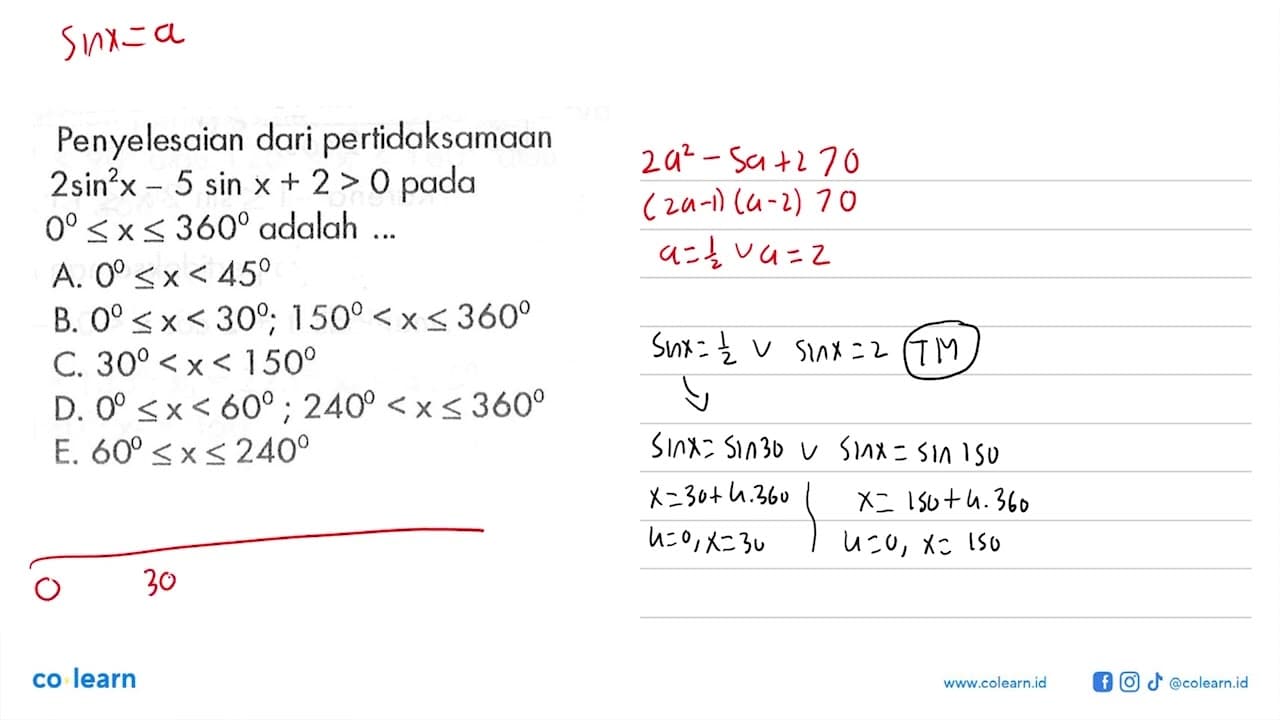 sinx=a
Penyelesaian dari pertidaksamaan
2sin²x – 5 sin x + 2 > 0 pada
0⁰ ≤ x ≤ 360⁰ adalah ...
A. 0⁰ ≤ x < 45⁰
B. 0⁰ ≤ x < 30⁰; 150⁰ < x ≤ 360⁰
C. 30⁰ < x < 150⁰
D. 0⁰ ≤ x < 60⁰ ; 240⁰ < x ≤ 360⁰
E. 60⁰ ≤ x ≤ 240⁰
0 30
2a² - 5a + 2 > 0
(2a-1) (a-2) > 0
a = 1/2 ∨ a = 2
sinx = 1/2 ∨ sinx = 2 TM
sinx = sin30 ∨ sinx = sin 150
x = 30 + k.360 x = 150 + k.360
k=0, x=30 k=0, x = 150
co learn
www.colearn.id @colearn.id